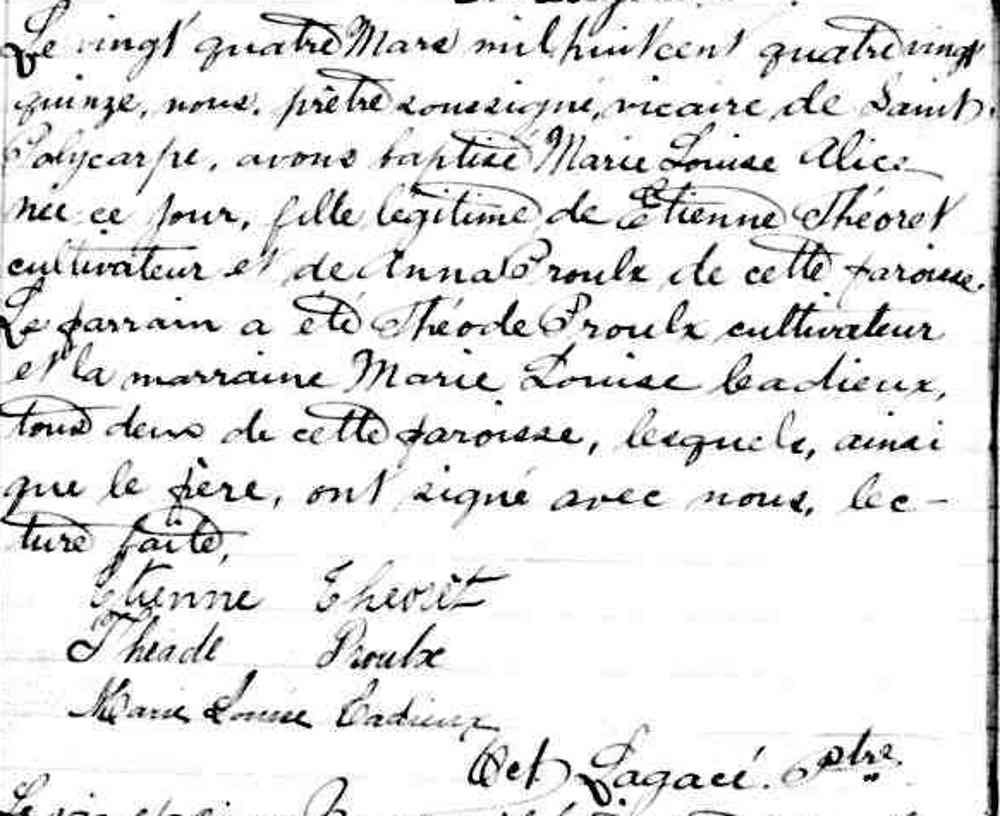 Le vingt quatre Mars mil huit cent quatre vingt
quinze, nous, prêtre soussigné, vicaire de Saint
Polycarpe, avons baptisé Marie Louise Alice
née ce jour, fille légitime de Etienne Théoret
cultivateur et de Anna Proulx de cette paroisse.
Le parrain a été Théode Proulx cultivateur
et la marraine Marie Louise Cadieux,
tous deux de cette paroisse, lesquels, ainsi
que le père, ont signé avec nous, lec-
ture faite,
Etienne Theorêt
Théade Proulx
Marie Louise Cadieux
Oct Lagacé. Ptre.